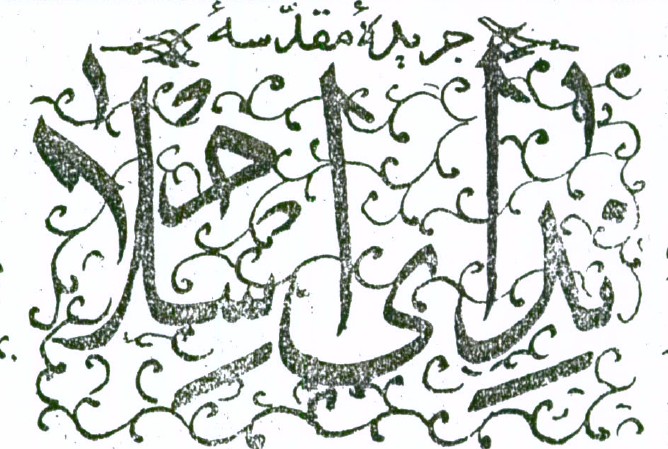 جریدهٔ مقدّسهٔ
ندای اسلام